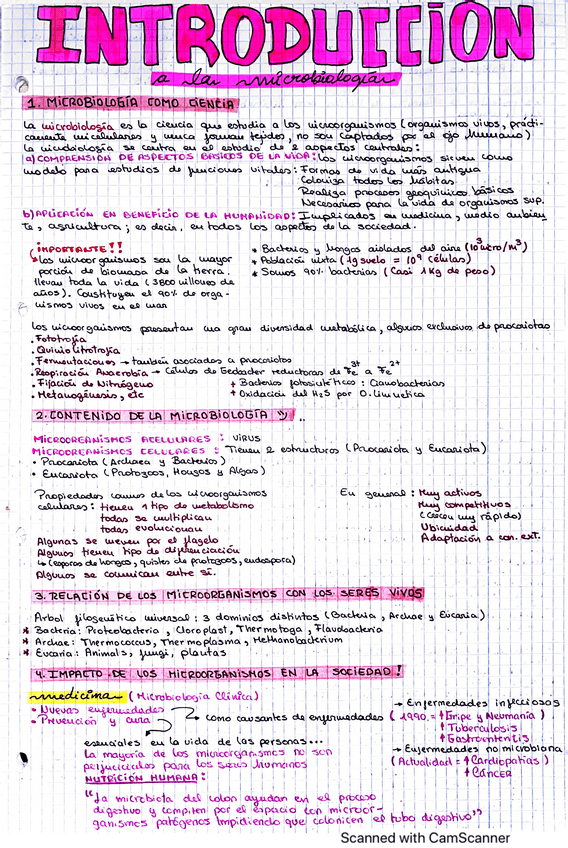 INTRODUCCIÓN
a la microbiología
1. MICROBIOLOGÍA COMO CIENCIA
La microbiología es la ciencia que estudia a los microorganismos (organismos vivos, prácti-
camente unicelulares y nunca forman tejidos, no son captados por el ojo humano)
La microbiología se centra en el estudio de 2 aspectos centrales:
a) COMPRENSIÓN DE ASPECTOS BÁSICOS DE LA VIDA: los microorganismos sirven como
modelo para estudios de funciones vitales: Formas de vida más antigua
Coloniza todos los hábitas
Realiza procesos geoquímicos básicos
Necesarios para la vida de organismos sup.
b) APLICACIÓN EN BENEFICIO DE LA HUMANIDAD: Implicados en medicina, medio ambien
te, agricultura; es decir, en todos los aspectos de la sociedad.
IMPORTANTE!!
los microorganismos son la mayor
porción de biomasa de la tierra.
llevan toda la vida (3800 millones de
años). Constituyen el 90% de orga-
nismos vivos en el mar
* Bacterias y hongos aislados del aire (10³ micro/m³)
* Población mixta (1g suelo = 10⁹ células)
* Somos 90% bacterias (Casi 1Kg de peso)
los microorganismos presentan una gran diversidad metabólica, algunos exclusivos de procariotas
• Fototrofía
• Quimiolitotrofía
• Fermentaciones → también asociados a procariotas
• Respiración Anaerobia → Células de Geobacter reductoras de Fe³⁺ a Fe²⁺
• Fijación de Nitrógeno
• Metanogénesis, etc
+ Bacterias fotosintéticos: Cianobacterias
+ Oxidación del H₂S por O. limnetica
2. CONTENIDO DE LA MICROBIOLOGÍA
MICROORGANISMOS ACELULARES: VIRUS
MICROORGANISMOS CELULARES: Tienen 2 estructuras (Procariota y Eucariota)
• Procariota (Archaea y Bacterias)
• Eucariota (Protozoos, Hongos y Algas)
Propiedades comunes de los microorganismos
celulares: tienen 1 tipo de metabolismo
todas se multiplican
todas evolucionan
Algunas se mueven por el flagelo
Algunos tienen tipo de diferenciación
↳ (esporas de hongos, quistes de protozoos, endospora)
Algunos se comunican entre sí.
En general: Muy activos
Muy competitivos
(crecen muy rápido)
Ubicuidad
Adaptación a con. ext.
3. RELACIÓN DE LOS MICROORGANISMOS CON LOS SERES VIVOS
Arbol filogenético universal: 3 dominios distintos (Bacteria, Archae y Eucaria)
* Bacteria: Proteobacteria, Cloroplast, Thermotoga, Flavobacteria
* Archae: Thermococcus, Thermoplasma, Methanobacterium
* Eucaria: Animals, fungi, plantas
4. IMPACTO DE LOS MICROORGANISMOS EN LA SOCIEDAD!
medicina (Microbiología Clínica)
• Nuevas enfermedades
• Prevención y cura
como causantes de enfermedades
→ Enfermedades infecciosas
(1990 = ↑Gripe y Neumanía)
↑Tuberculosis
↑Gastroenteritis
→ Enfermedades no microbiana
(Actualidad = ↑Cardiopatías)
↑CÁNCER
esenciales en la vida de las personas...
la mayoría de los microorganismos no son
perjudiciales para los seres humanos
NUTRICIÓN HUMANA:
"La microbiota del colon ayudan en el proceso
digestivo y compiten por el espacio con microor-
ganismos patógenos impidiendo que colonicen el tubo digestivo"
Scanned with CamScanner